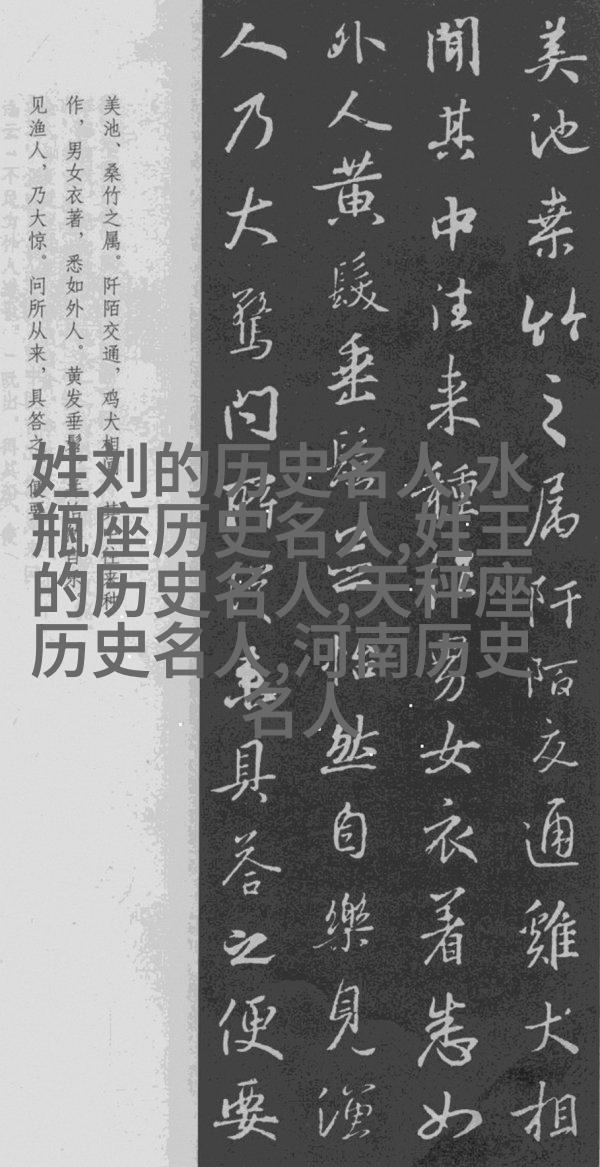 美池桒竹之属阡陌交通雞犬相
聞其中往来種作男女衣着悉如
外人黄髮垂髫並怡然自樂見漁
人乃大驚问所具答之便要
美池、桑竹之属。阡陌交通，鸡犬相闻。其中往来种
作，男女衣著，悉如外人。黄发垂髫，
见渔人，乃大惊。问所从来，具答之。便要
姓刘的历史名人,水
瓶座历史名人,姓王
的历史名人,天秤座
历史名人,河南历史
名人